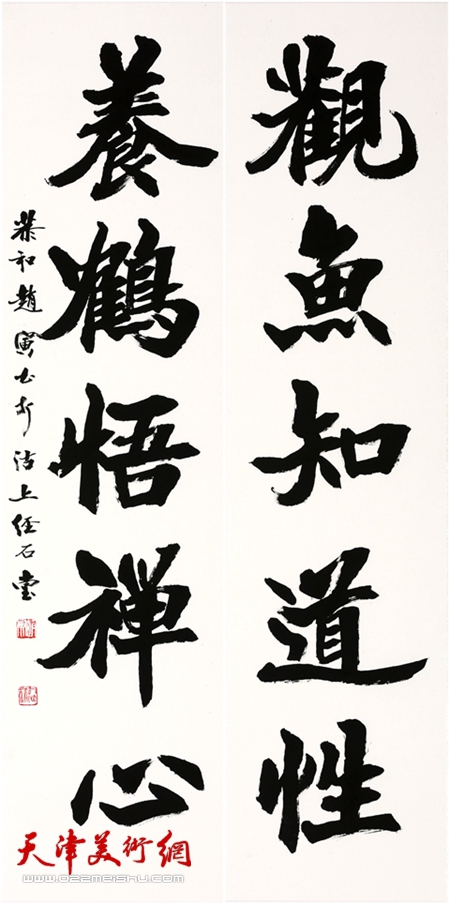 觀魚知道性
養鶴悟禅心
恭和趙寅書於沽上經石堂
天津美術網
www.022meishu.com